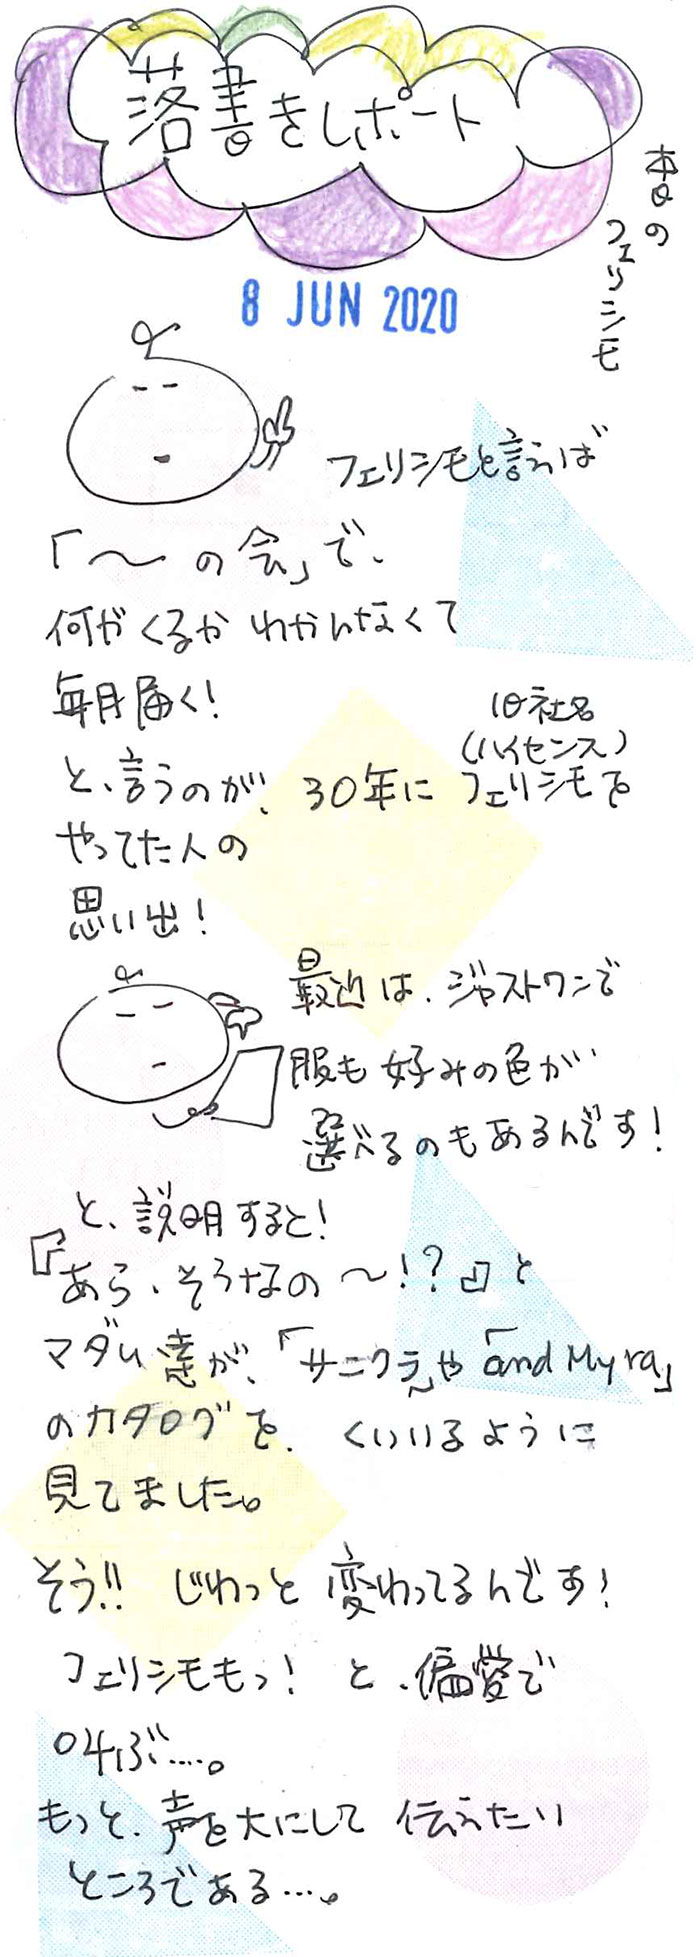 落書きレポート
本日の
フェリシモ
8 JUN 2020
フェリシモと言えば
「〜の会」で、
何がくるかわかんなくて
毎月届く!
旧社名
(ハイセンス)
と、言うのが、30年にフェリシモを
やってた人の
思い出!
最近は、ジャストワンで
服も好みの色が
選べるのもあるんです!
と、説明すると!
『あら、そうなの〜!?』と
マダム達が、「サニクラ」や「and Myra」
のカタログを、くいいるように
見てました。
そう!! じわっと変わってるんです!
フェリシモもっ! と、偏愛で
叫ぶ……。
もっと、声を大にして伝えたい
ところである…。